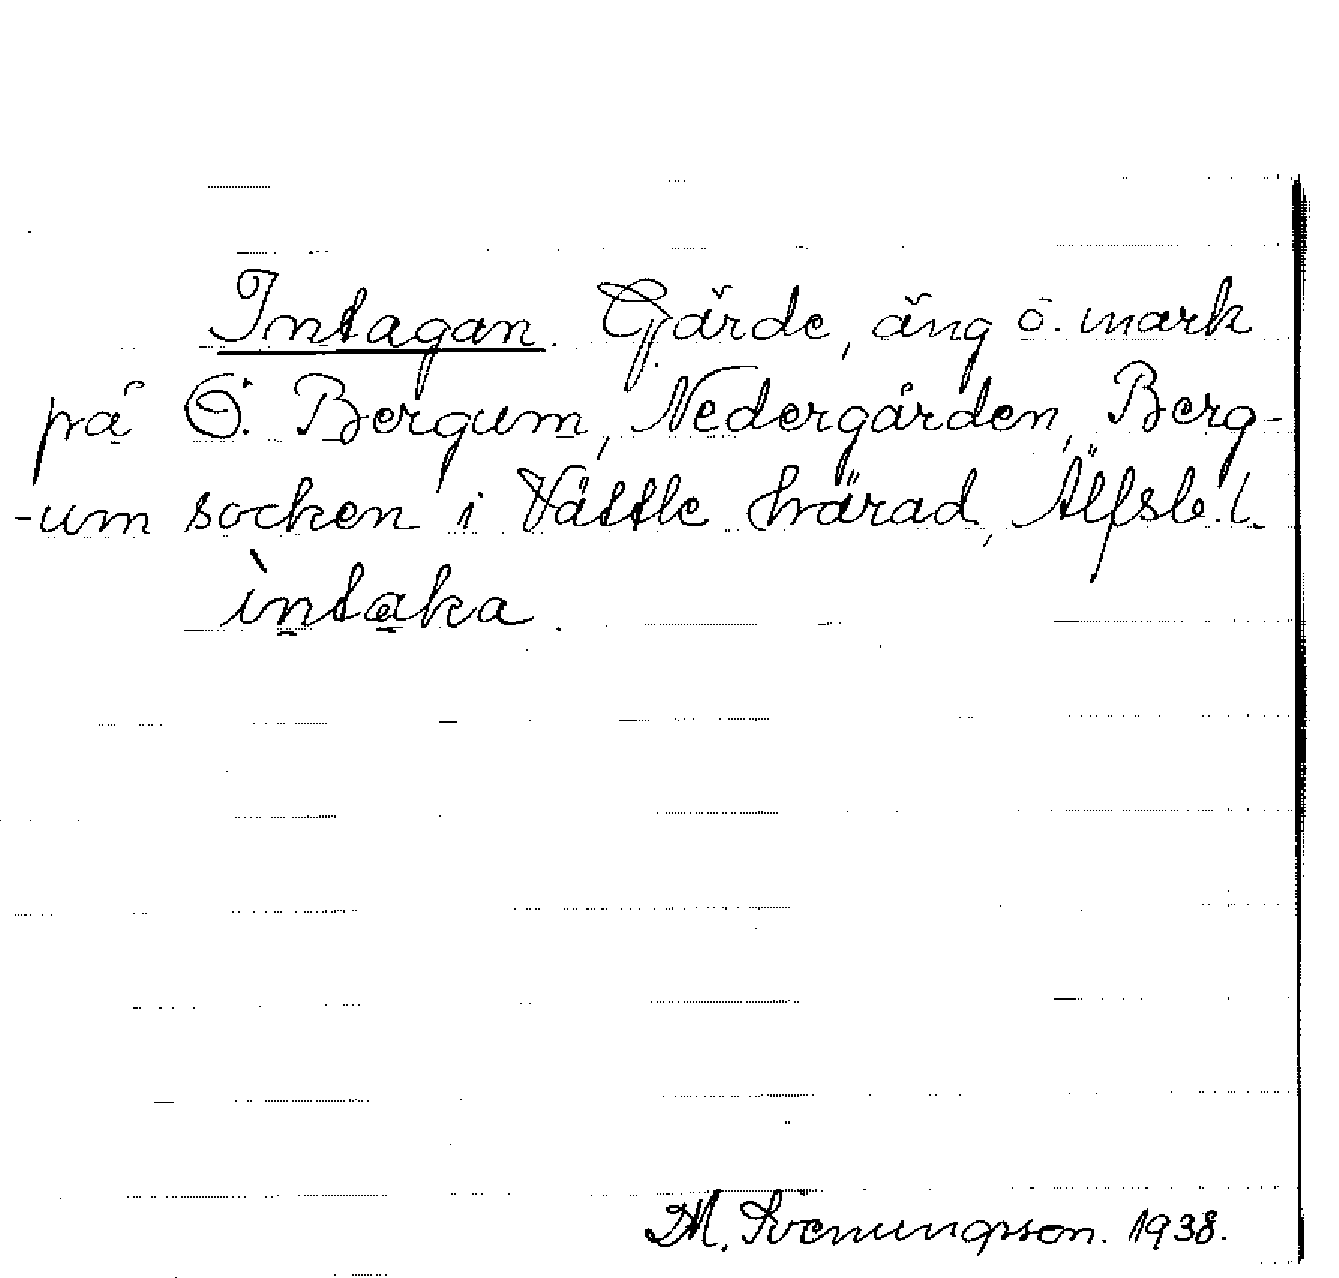 Intagan. Gärde, äng o. mark
på Ö. Bergum, Nedergården, Berg-
-um socken i Vättle härad, Älfsb. l.
ìntaka.
M. Svenungsson. 1938.